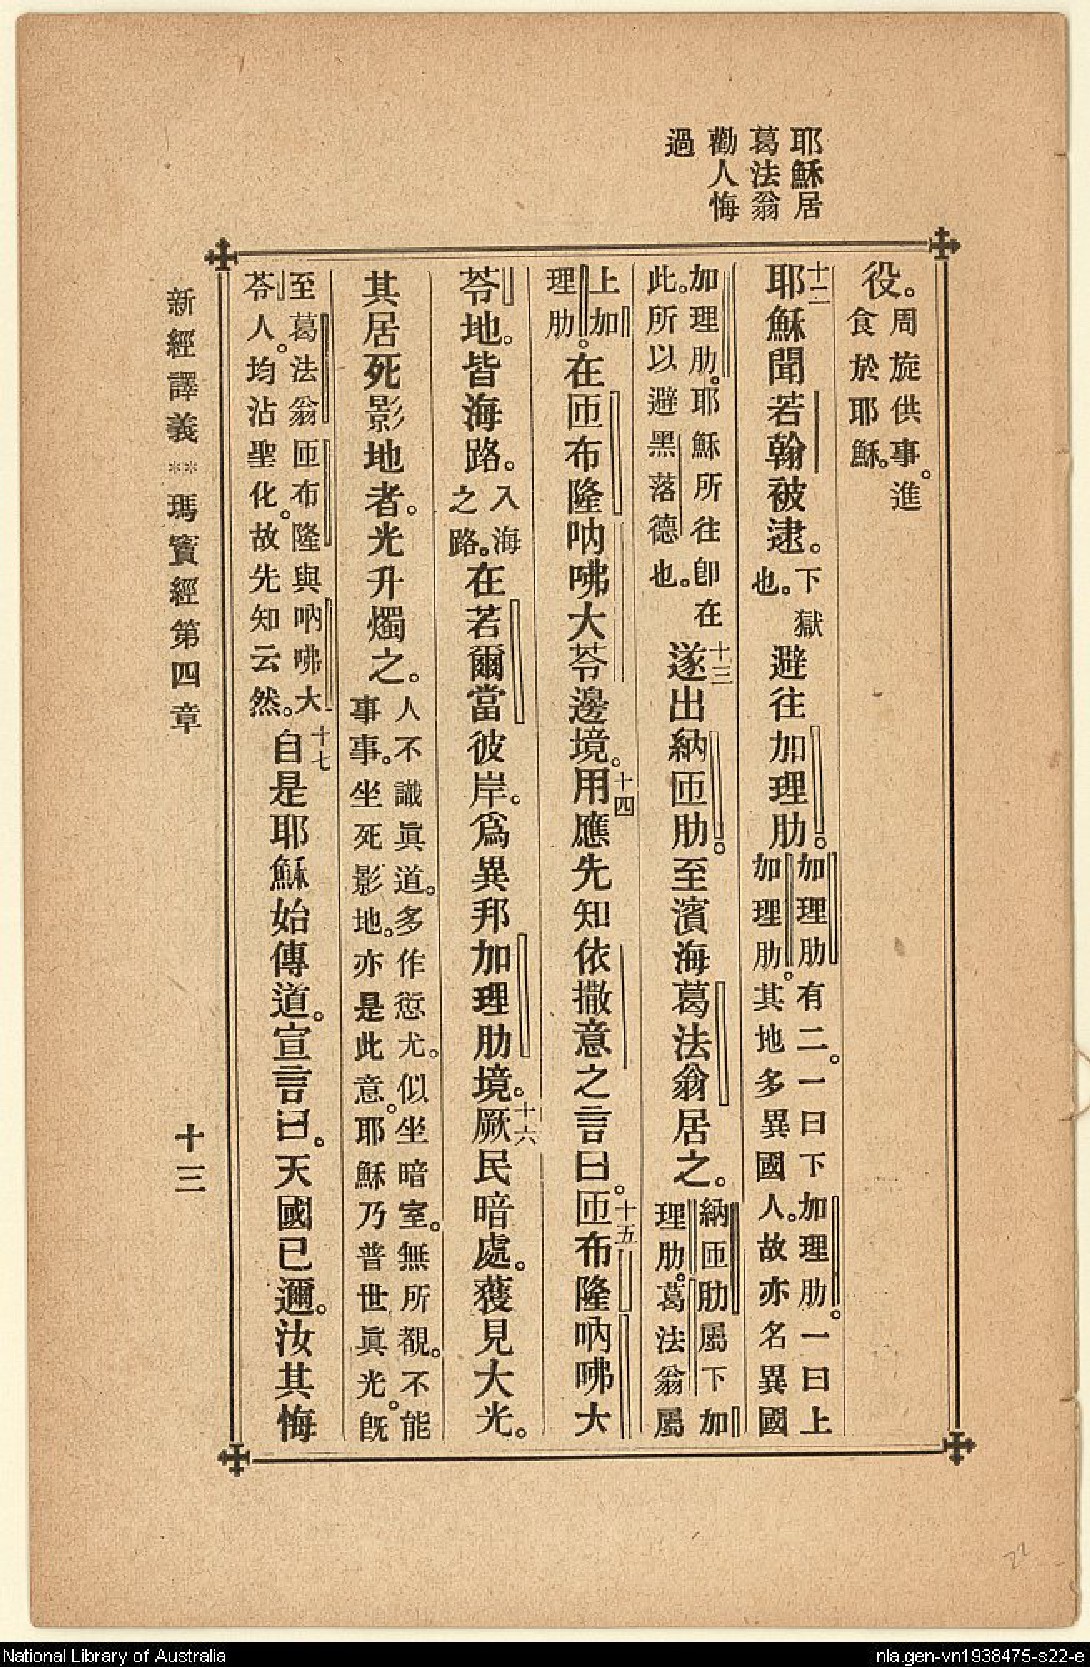 耶穌居
葛法翁
勸人悔
過
役。周旋供事。進食於耶穌。
十二耶穌聞若翰被逮。下獄也。避往加理肋。加理肋有二。一曰下加理肋。一曰上加理肋。其地多異國人。故亦名異國
加理肋。耶穌所往卽在此。所以避黑落德也。十三遂出納匝肋。至濱海葛法翁居之。納匝肋屬下加理肋。葛法翁屬
上加理肋。在匝布隆吶咈大苓邊境。十四用應先知依撒意之言曰。十五匝布隆吶咈大
苓地。皆海路。入海之路。在若爾當彼岸。爲異邦加理肋境。十六厥民暗處。獲見大光。
其居死影地者。光升燭之。人不識眞道。多作愆尤。似坐暗室。無所覩。不能事事。坐死影地。亦是此意。耶穌乃普世眞光。旣
至葛法翁匝布隆與吶咈大苓人。均沾聖化。故先知云然。十七自是耶穌始傳道。宣言曰。天國已邇。汝其悔
新經譯義**瑪竇經第四章 十三
22
National Library of Australia
nla.gen-vn1938475-s22-e